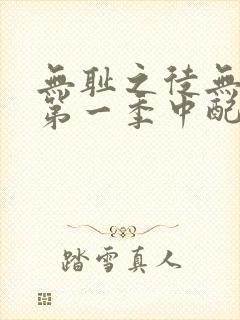 無耻之徒無
第一季中配
踏雪真人